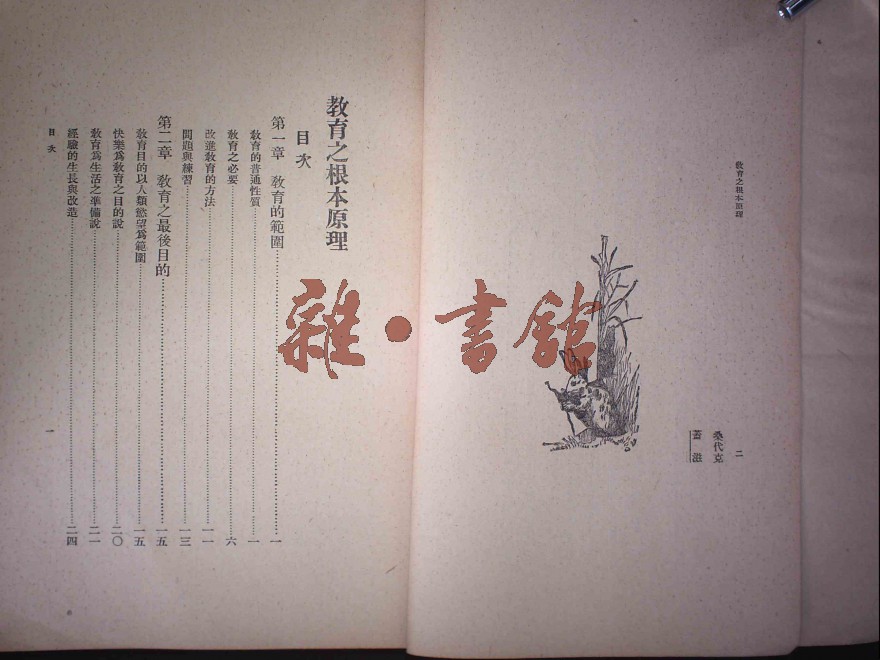 教育之根本原理
二
桑代克
蓋滋
教育之根本原理
目次
第一章 教育的範圍…………一
教育的普通性質…………一
教育之必要…………六
改進教育的方法…………一一
問題與練習…………一三
第二章 教育之最後目的…………一五
教育目的以人類慾望爲範圍…………一五
快樂爲教育之目的說…………二〇
教育爲生活之準備說…………二一
經驗的生長與改造…………二四
目次
一
雜•書舘